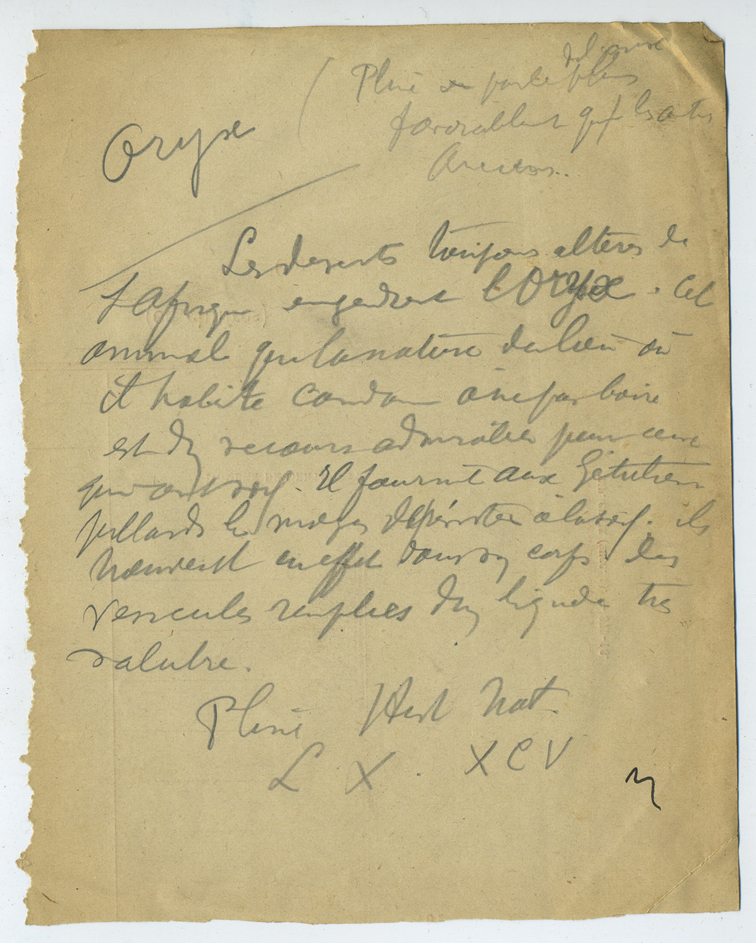 Oryx
( Pline en parle plus
favorablement que les autres
Anciens..
Les deserts toujours altérés de
l'Afrique engendrent l'Oryx. Cet
animal que la nature du lieu où
il habite condamne à ne pas boire
est d'un recours admirable pour ceux
qui ont soif. Il fournit aux Gétuliens
pillards le moyen de résister à la soif. ils
trouvent en effet dans son corps des
vesicules remplies d'un liquide très
salubre.
Pline Hist Nat.
L X XCV